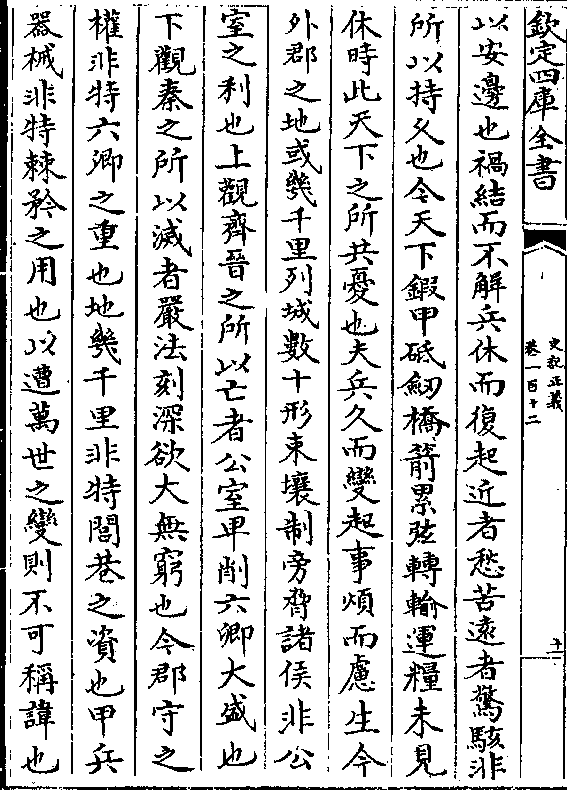 欽定四庫全書
史記正義
卷一百十二
十
以安邊也禍結而不解兵休而復起近者愁苦遠者驚駭非
所以持久也今天下鍜甲砥劒橋箭累弦轉輸運糧未見
休時此天下之所共憂也夫兵久而變起事煩而慮生今
外郡之地或幾千里列城數十形束壤制旁脅諸侯非公
室之利也上觀齊晉之所以亡者公室卑削六卿大盛也
下觀秦之所以滅者嚴法刻深欲大無窮也今郡守之
權非特六卿之重也地幾千里非特閭巷之資也甲兵
器械非特棘矜之用也以遭萬世之變則不可稱諱也